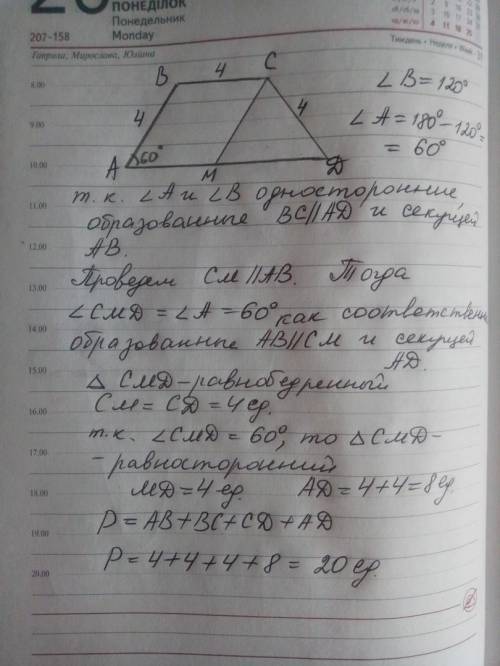 ПОНЕДІЛОК
Понедельник
207-158 Monday
Тиждень • Неделя • Week
Гаврила, Мирослава, Юліана
8.00
9.00
10.00
11.00
12.00
13.00
14.00
15.00
16.00
17.00
18.00
19.00
20.00
B 4 C
4 4
A 60° M D
∠B=120°
∠A=180°-120°=
=60°
т.к. ∠A и ∠B односторонние
образованные BC||AD и секущей
AB.
Проведем CM||AB. Тогда
∠CMD=∠A=60° как соответствен
образованные AB||CM и секущей
AD.
△CMD-равнобедренный
CM=CD=4ед.
т.к. ∠CMD=60°, то △CMD-
-равносторонний
MD=4ед. AD=4+4=8ед.
P=AB+BC+CD+AD
P=4+4+4+8=20ед.